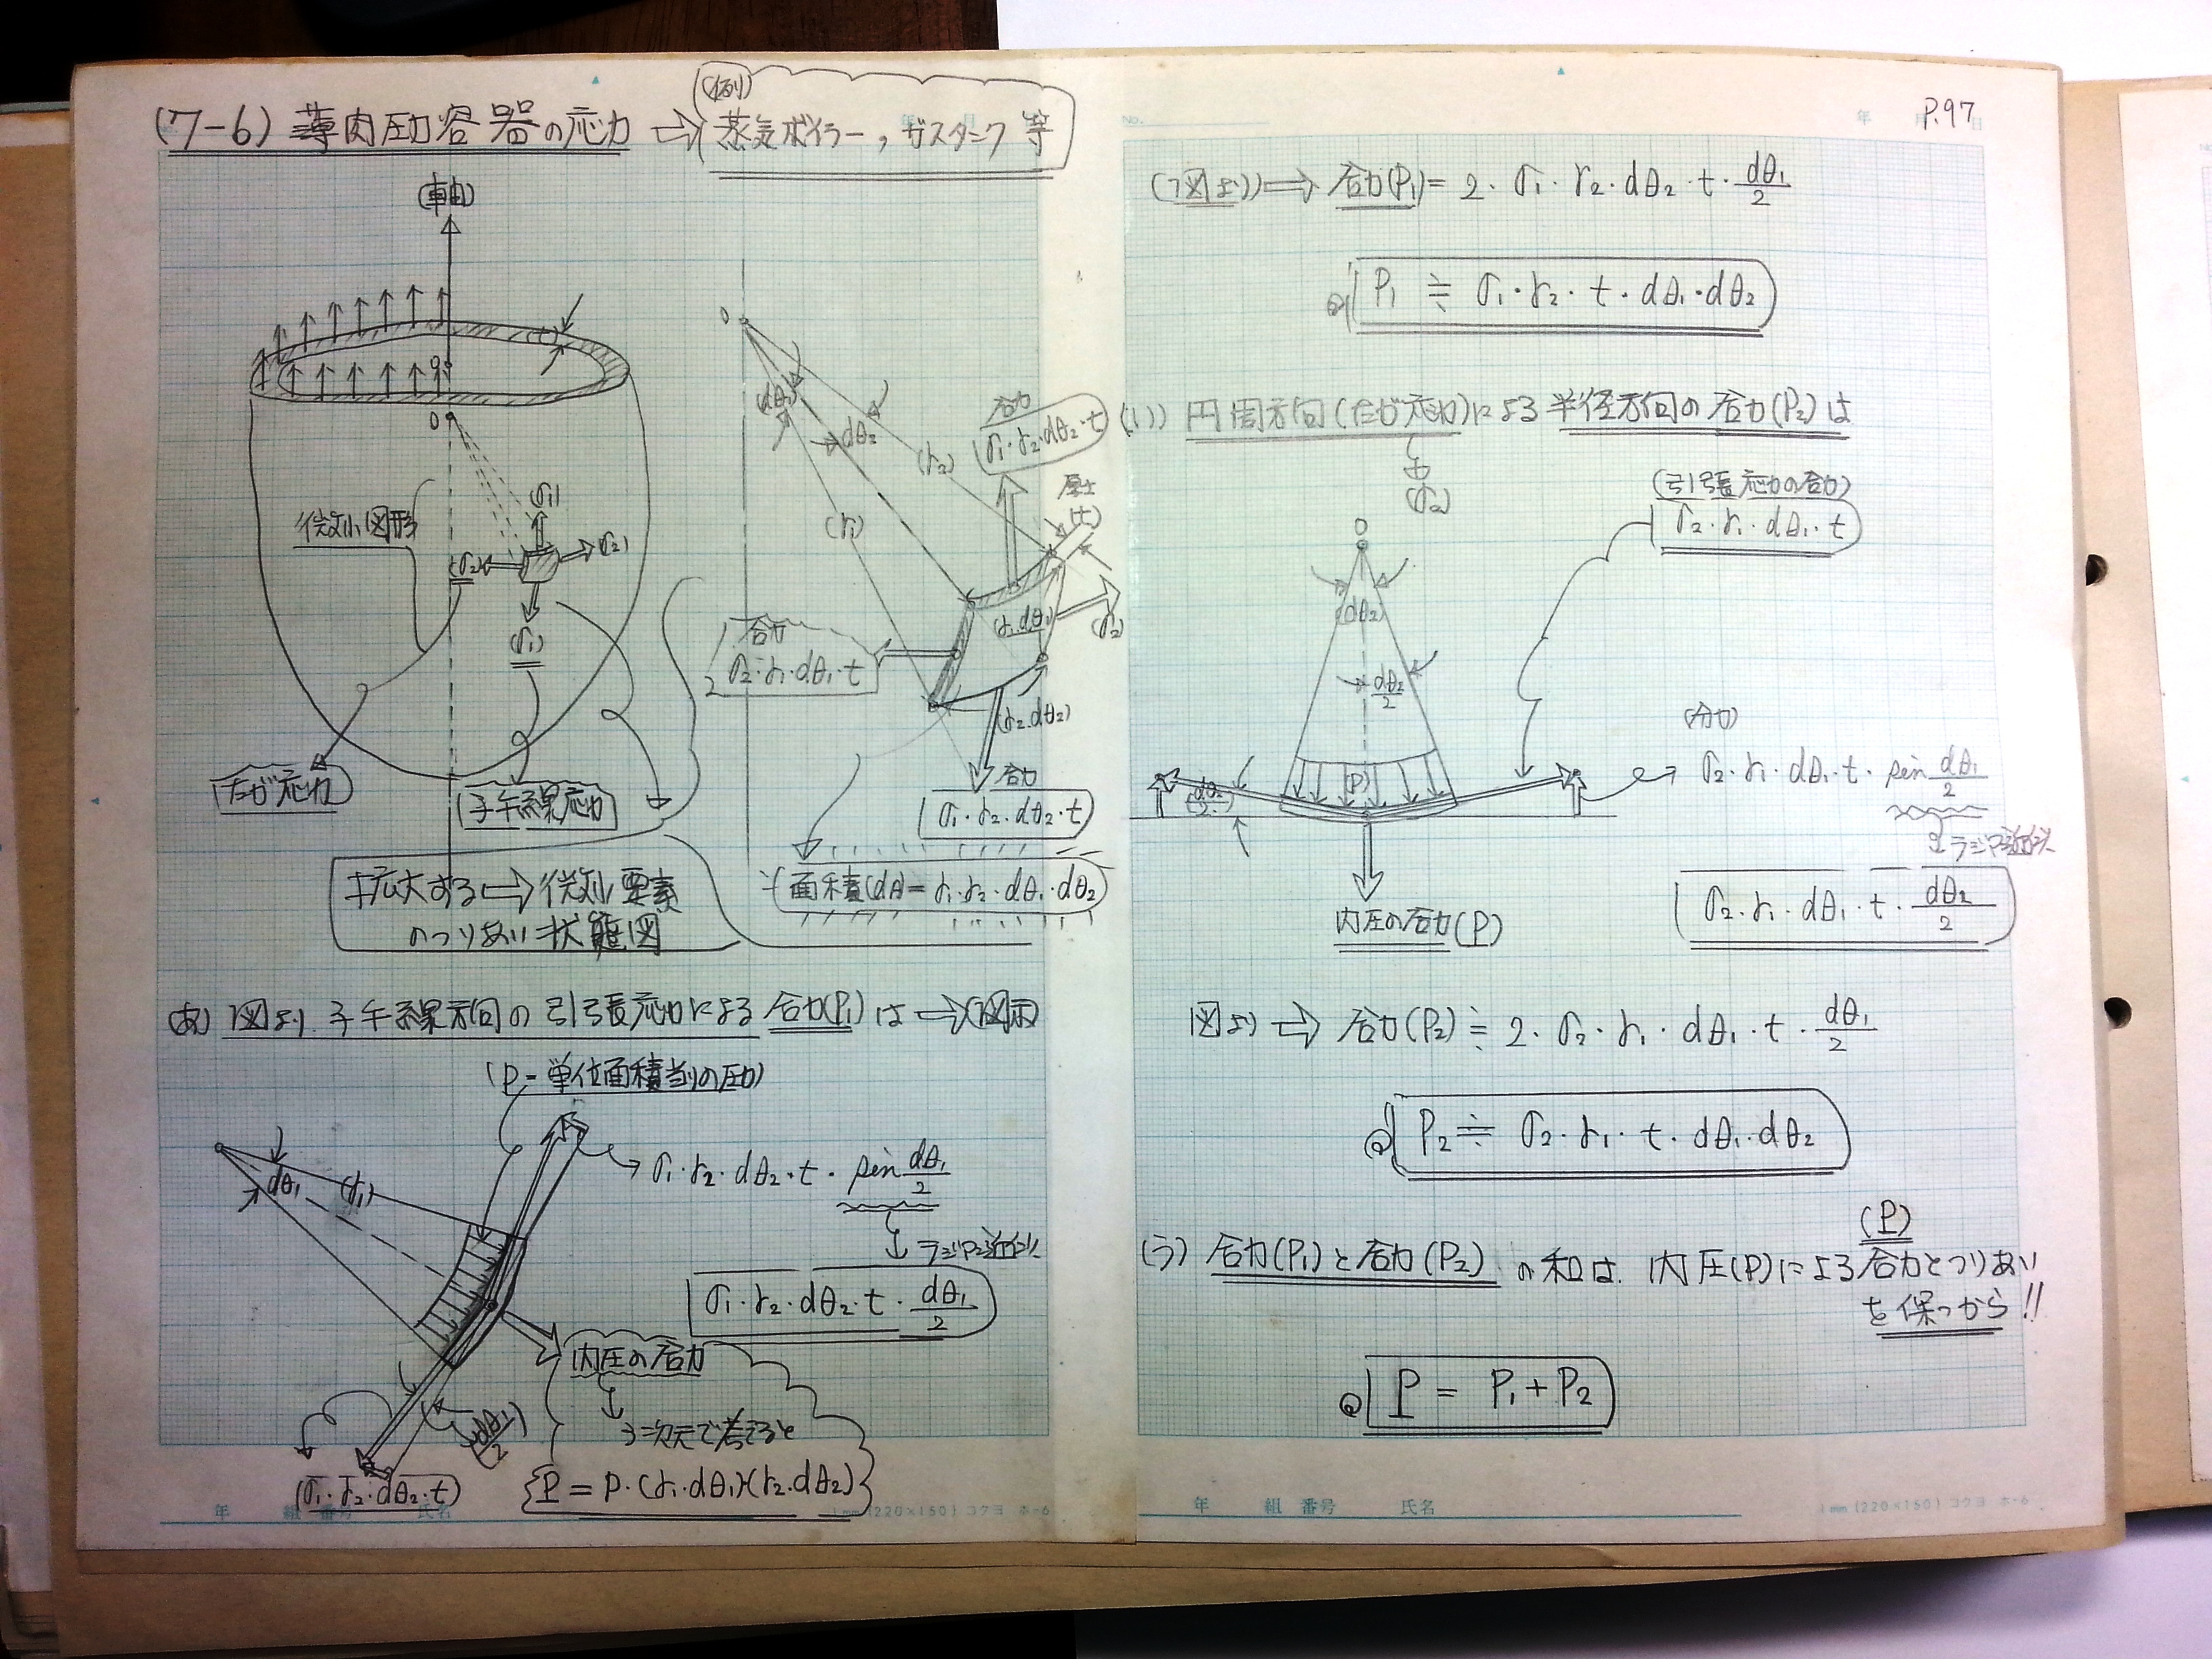 (7-6) 薄肉圧力容器の応力 ⇨
(例)
蒸気ボイラー, ガスタンク 等
(軸)
(t)
O
O
微小図形
(σ1)
(σ2)
(σ2)
(σ1)
たが応力
子午線応力
拡大する ⇨ 微小要素
のつりあい状態図
O
(dθ1)
dθ2
(r2)
(r1)
合力
σ1・r2・dθ2・t
厚さ
(t)
(r1.dθ1)
(σ2)
合力
σ2・r1・dθ1・t
(r2.dθ2)
合力
σ1・r2・dθ2・t
面積(dA)= r1・r2・dθ1・dθ2
(あ) 図より 子午線方向の引張応力による 合力(P1) は → (図示)
(p-単位面積当りの圧力)
dθ1
(r1)
σ1・r2・dθ2・t・sin dθ1/2
ラジアン近似
σ1・r2・dθ2・t・dθ1/2
内圧の合力
3次元で考えると
P = p・(r1.dθ1)(r2.dθ2)
(dθ1/2)
(σ1・r2・dθ2・t)
年 組 番号 氏名
1mm (220×150) コクヨ ホ-6
No.
年 月 日
P.97
(図より) ⇒ 合力(P1)= 2・σ1・r2・dθ2・t・dθ1/2
P1 ≒ σ1・r2・t・dθ1・dθ2
(い) 円周方向(たが応力)による半径方向の合力(P2)は
(σ2)
(引張応力の合力)
σ2・r1・dθ1・t
O
(dθ2)
dθ2/2
(p)
dθ2/2
(分力)
σ2・r1・dθ1・t・sin dθ1/2
ラジアン近似
σ2・r1・dθ1・t・dθ2/2
内圧の合力(P)
図より ⇒ 合力(P2) ≒ 2・σ2・r1・dθ1・t・dθ1/2
P2 ≒ σ2・r1・t・dθ1・dθ2
(P)
(う) 合力(P1)と合力(P2) の和は、内圧(P)による合力とつりあい
を保つから!!
P = P1+P2
年 組 番号 氏名
1mm (220×150) コクヨ ホ-6